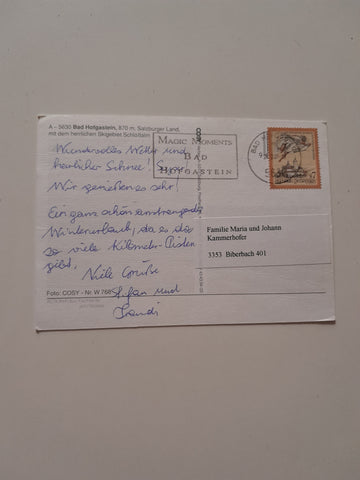 A - 5630 Bad Hofgastein, 870 m, Salzburger Land,
mit dem herrlichen Skigebiet Schloßalm
Wundervolles Wetter und
herrlicher Schnee! Super!
Wir genießen es sehr!
Ein ganz schön anstrengender
Winterurlaub, da es die
so viele Kilometer Pisten
gibt.
Viele Grüße
Stefan und
Foto: COSY - Nr. W 768
MAGIC MOMENTS
BAD
HOFGASTEIN
BAD
Familie Maria und Johann
Kammerhofer
3353 Biberbach 401